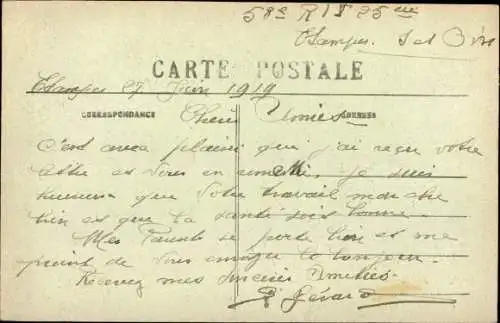 58e R I T 25 eme
Etampes. S et Oise
CARTE POSTALE
Etampes 27 Juin 1919
CORRESPONDANCE ADRESSE
Cheres Amies
C'est avec plaisir que j'ai reçu votre
lettre et vous en remercie. Je suis
heureux que votre travail marche
bien et que la santé sois bonne.
Mes Parents se porte bien et me
prient de vous envoyer le bonjour.
Recevez mes sincères Amitiés.
P. Gérard